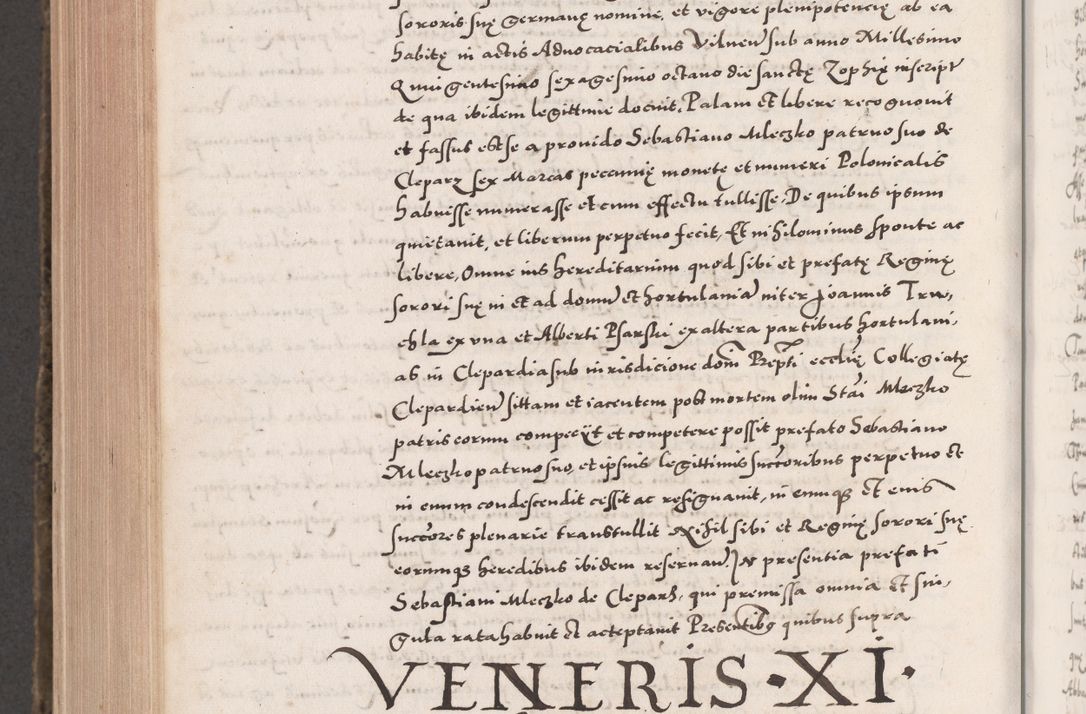 sororis suę Germanę nomine, et vigore plenipotencię ab ea
habitę in actis Advocacialibus Vilnen sub anno Millesimo
Quingentesimo sexagesimo octavo die sanctę Zophię inscript
de qua ibidem legittime docuit, Palam et libere recognovit
et fassus est se a provido Sebastiano Mleczko patruo suo de
Cleparz sex Marcas pecunię monetę et numeri Polonicalis
habuisse numerasse et cum effectu tullisse. De quibus ipsum
quietavit, et liberum perpetuo fecit, Et nihilominus sponte ac
libere, Omne ius hereditarium quod sibi et prefatę Reginę
sorori suę in et ad domum et hortulaniam inter Joannis Tru,
chla ex una et Alberti Psarski ex altera partibus hortulani,
as in Clepardia sub iurisdicione domi Prepti ecclię Collegiatę
Clepardien sittam et iacentem post mortem olim Stai Mleczko
patris eorum competit et competere possit prefato Sebastiano
Mleczko patruo suo, et ipsius legittimis succoribus perpetuo et
in evum condescendit cessit ac resignavit, in eumque et eius
succores plenarie transtullit Nihil sibi et Reginę sorori suę
eorumque heredibus ibidem reservan. In presentia prefati
Sebastiani Mleczko de Cleparz, qui premissa omnia et sin,
gula rata habuit et acceptavit Presentibq quibus supra
VENERIS · XI ·